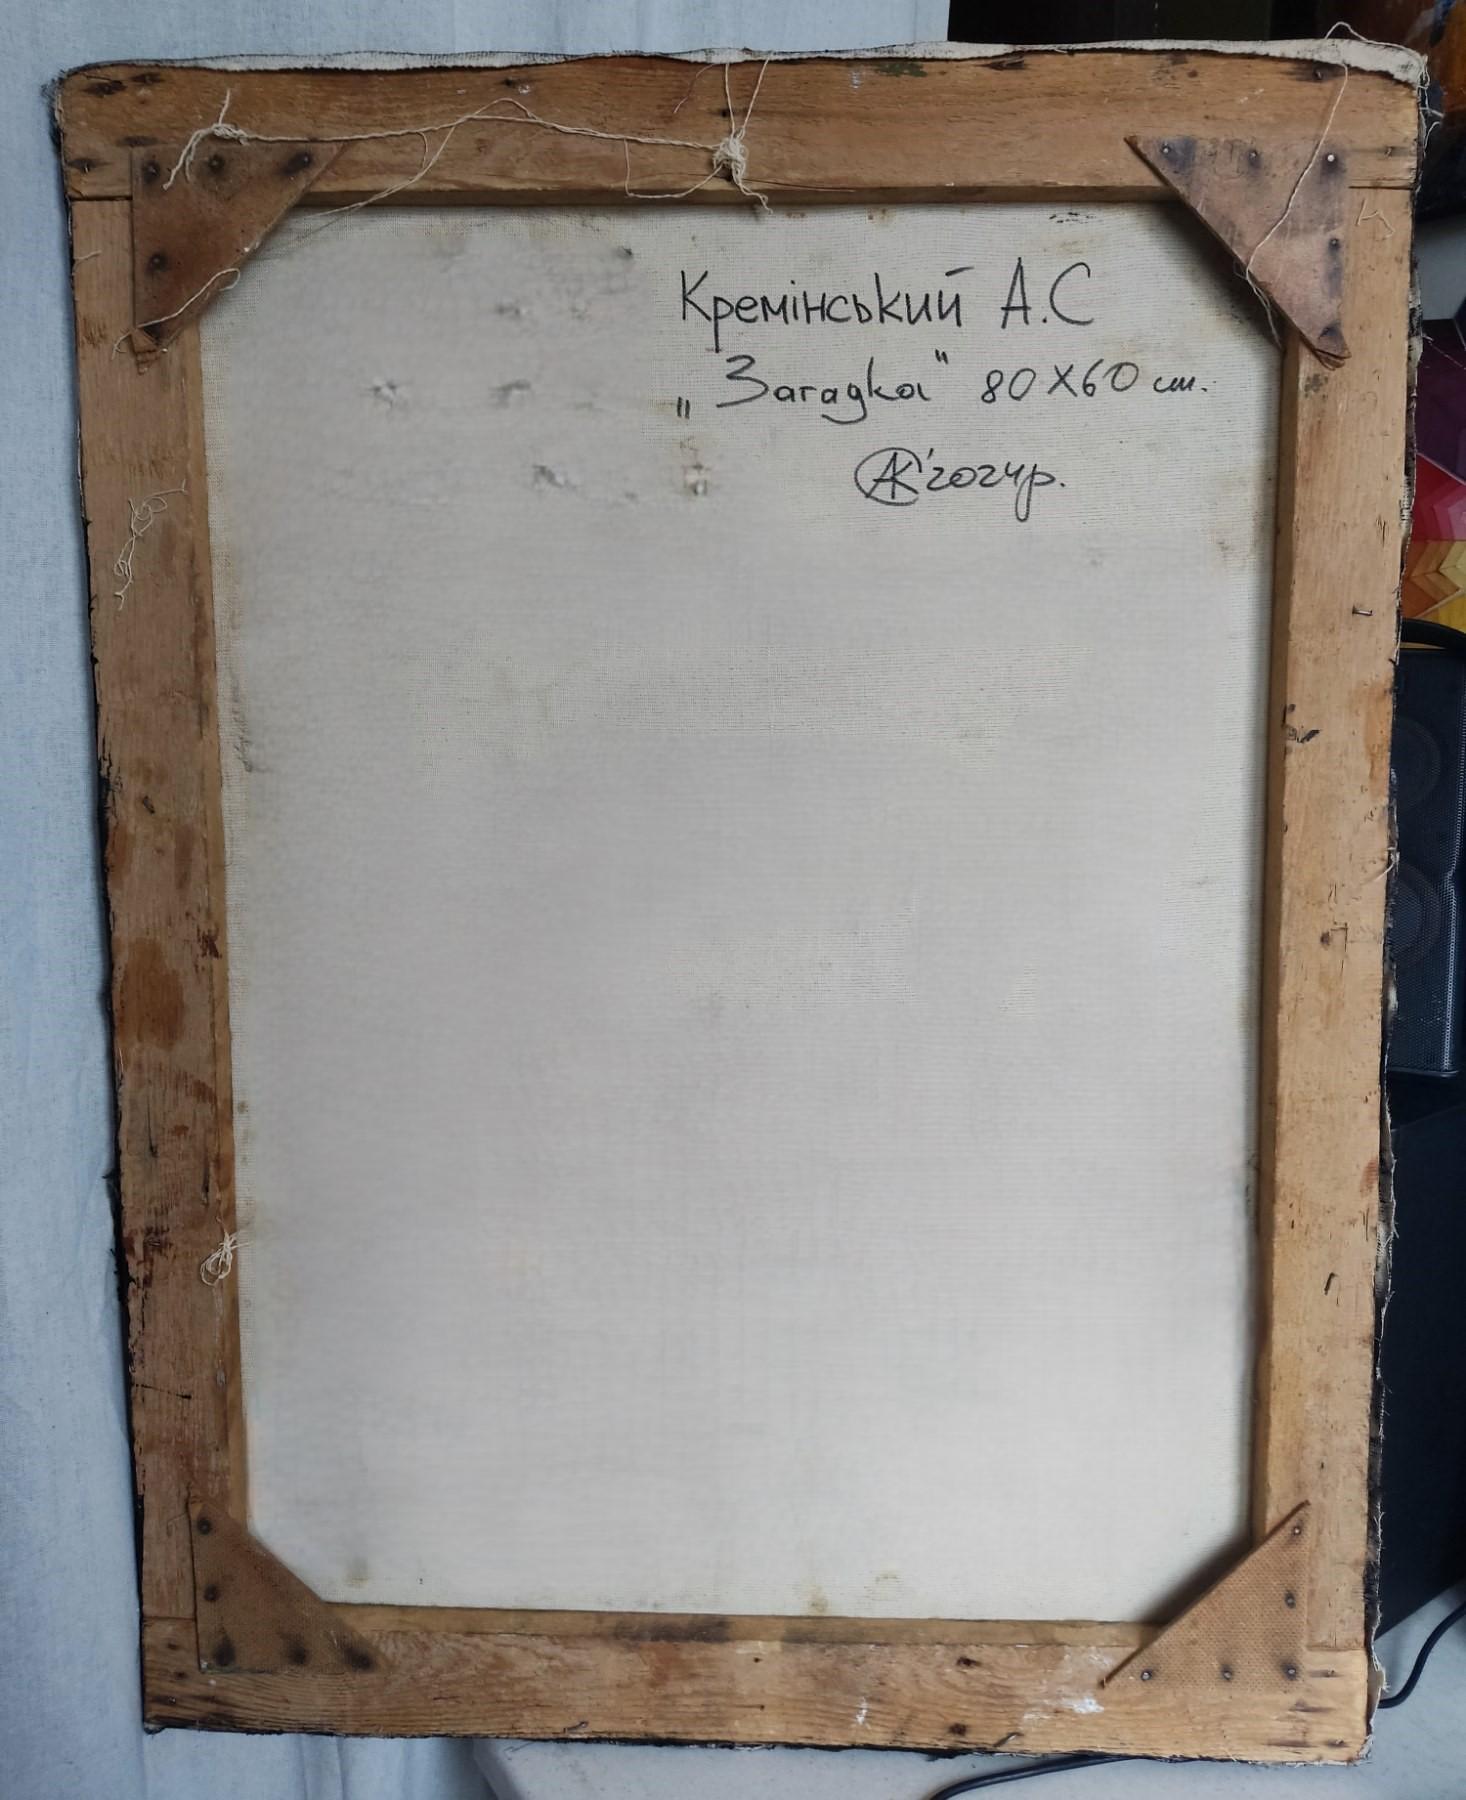 Кремінський А.С
„Загадка" 80х60 см.
АК'2024р.